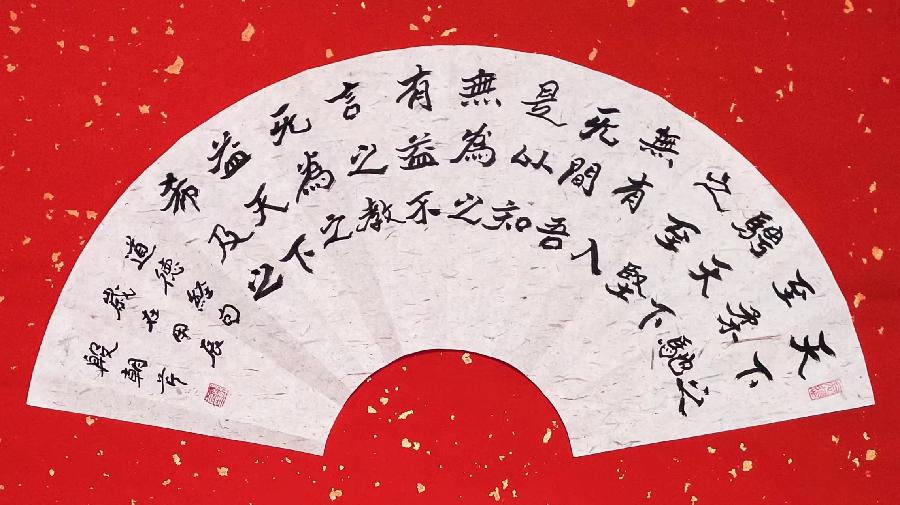 天下之
至柔馳
騁天下
之至堅
無有入
无間吾
是以知
無為之
有益不
言之教
无為之
益天下
希及之
道德經句
歲在甲辰
殷朝